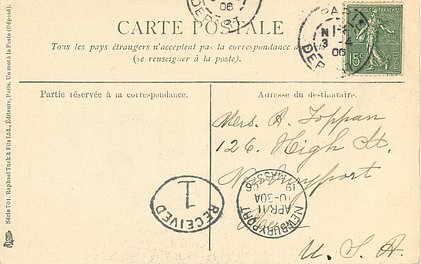 CARTE POSTALE
Tous les pays étrangers n'acceptent pas la correspondance
(se renseigner à la poste).
Partie réservée à la correspondance.
Adresse du destinataire.
Mrs. A. Toppan
126 High St.
Newburyport
Mass
U. S. A.
RECEIVED
1
NEWBURYPORT
APR 11
10-30A
19 06
MASS.
PARIS
06
DEP
15c
06
DEP
Série 701. Raphael Tuck & Fils Ltd., Éditeurs, Paris. Un mot à la Poste (Déposé).